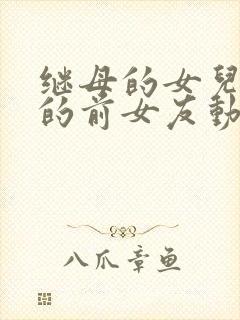 继母的女兒
的前女友動
八爪章鱼